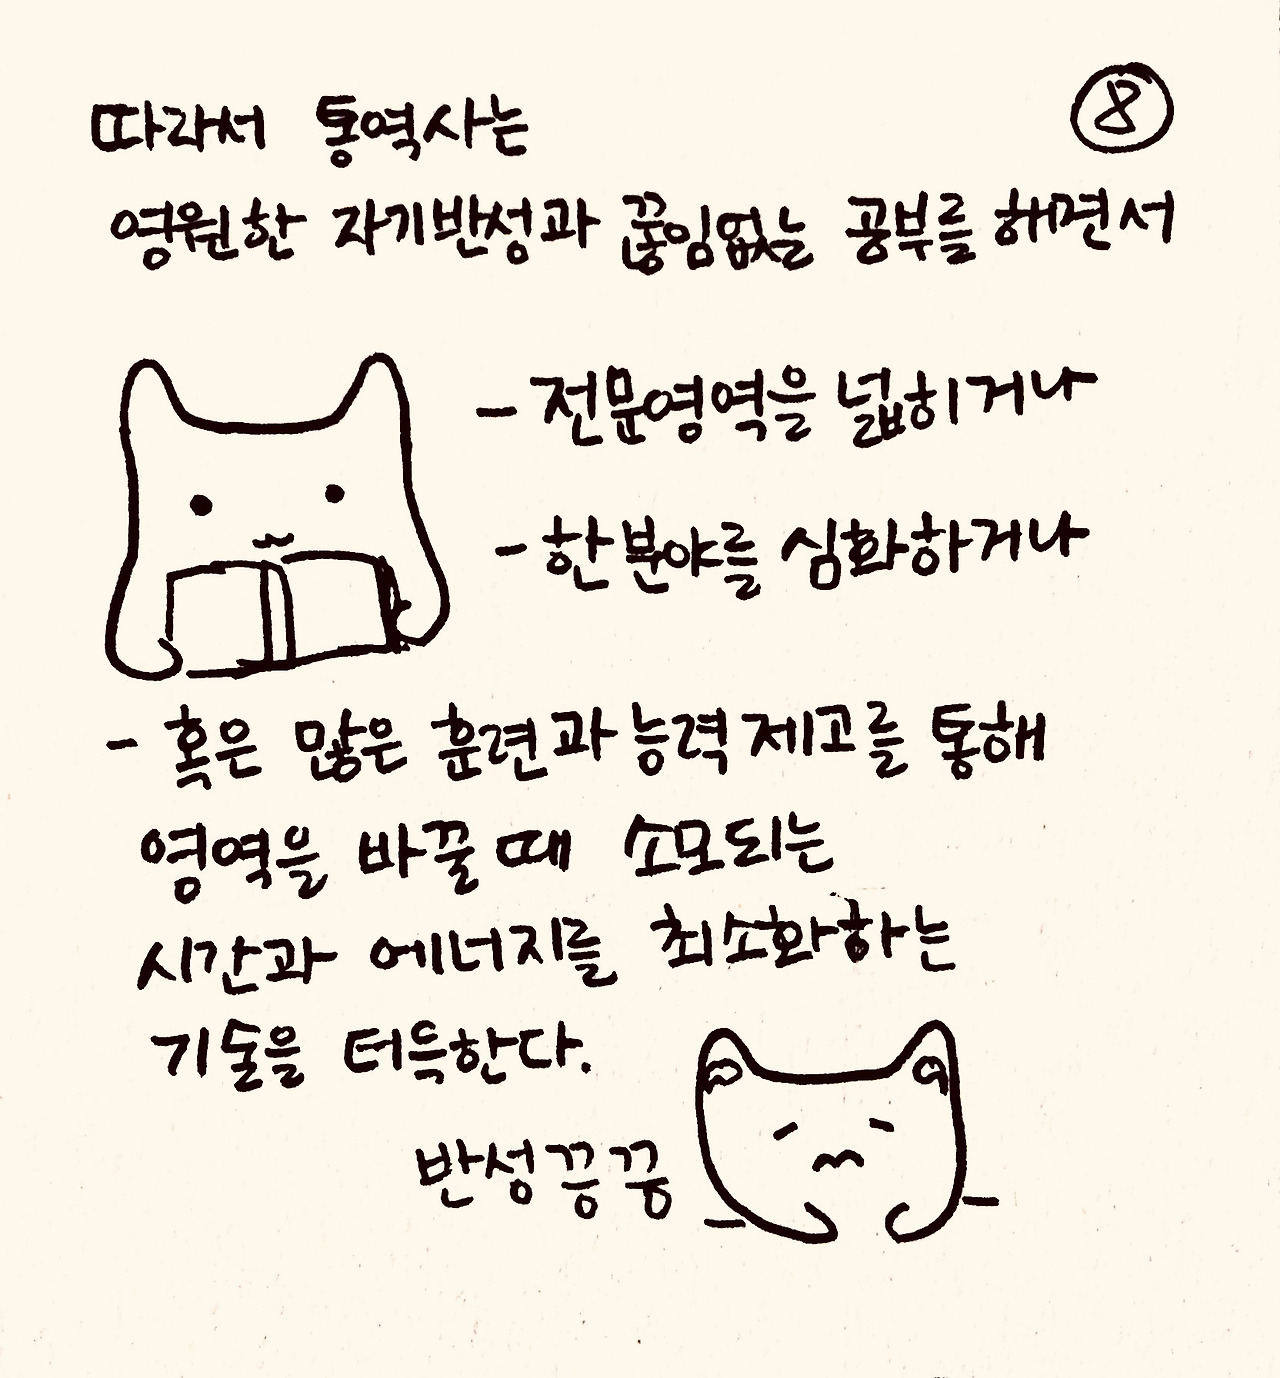 ⑧
따라서 통역사는
영원한 자기반성과 끊임없는 공부를 해면서
- 전문영역을 넓히거나
- 한분야를 심화하거나
- 혹은 많은 훈련과 능력제고를 통해
영역을 바꿀 때 소모되는
시간과 에너지를 최소화하는
기술을 터득한다.
반성끙끙